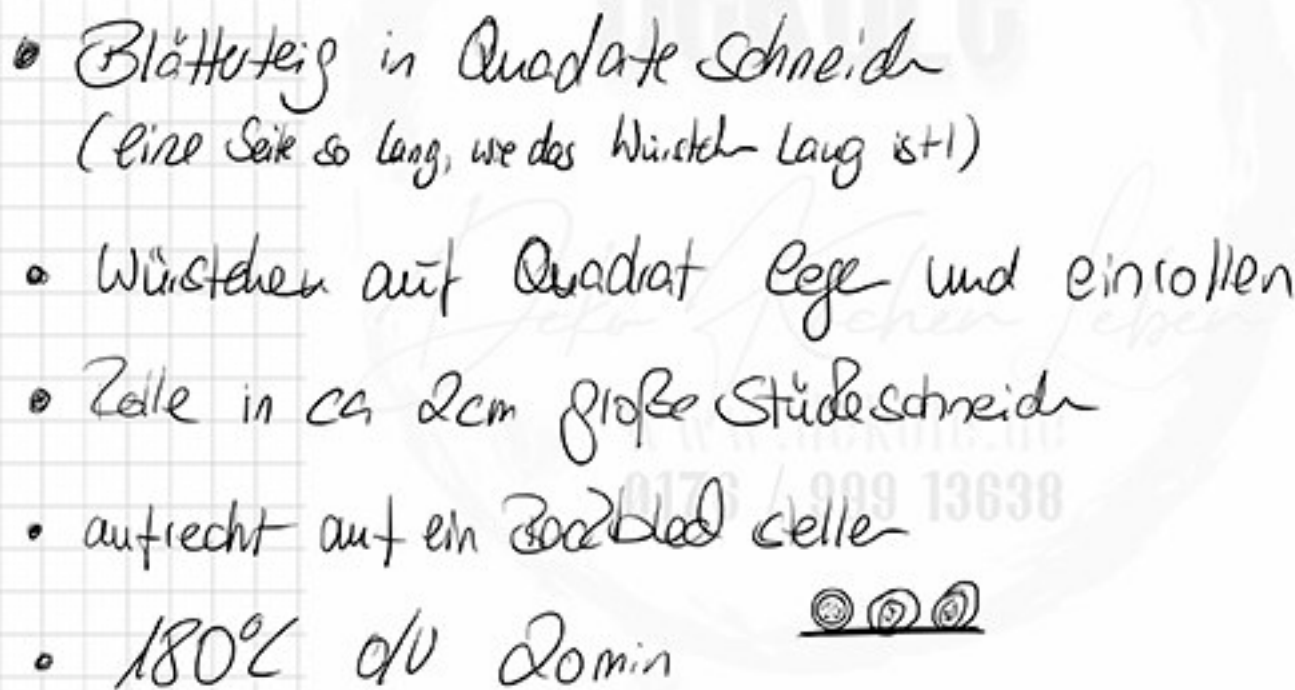 • Blätterteig in Quadrate schneiden
(eine Seite so lang, wie das Würstchen lang ist!)
• Würstchen auf Quadrat legen und einrollen
• Rolle in ca 2cm große Stücke schneiden
• aufrecht auf ein Backblech stellen
• 180°C O/U 20min
0176 / 999 13638